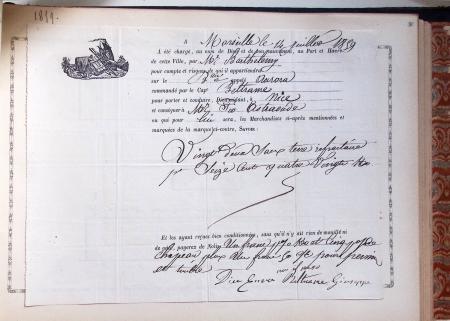 1859.
A Marseille le 14 Juillet 1859
A été chargé, au nom de Dieu et de bon sauvement, au Port et Havre
de cette Ville, par Mr Barthelemy
pour compte et risques de qui il appartiendra
sur le nommé Aurora
commandé par le Capne Beltrame
pour porter et conduire, Dieu aidant, à Nice
et consigner à Mr
ou pour lui sera, les Marchandises ci-après mentionnées et
marquées de la marque ci-contre, Savoir:
Vingt deux Sacs terre refractaire
pr Seize Cent quatre Vingts Ko
Et les ayant reçues bien conditionnées, sans qu'il n'y ait rien de mouillé ni
de gâté, payerez de Nolis Un franc pr % Ko et Cinq p %
chapeau plus Un franc 50 pour
et timbre
Dieu Beltrame Giuseppe